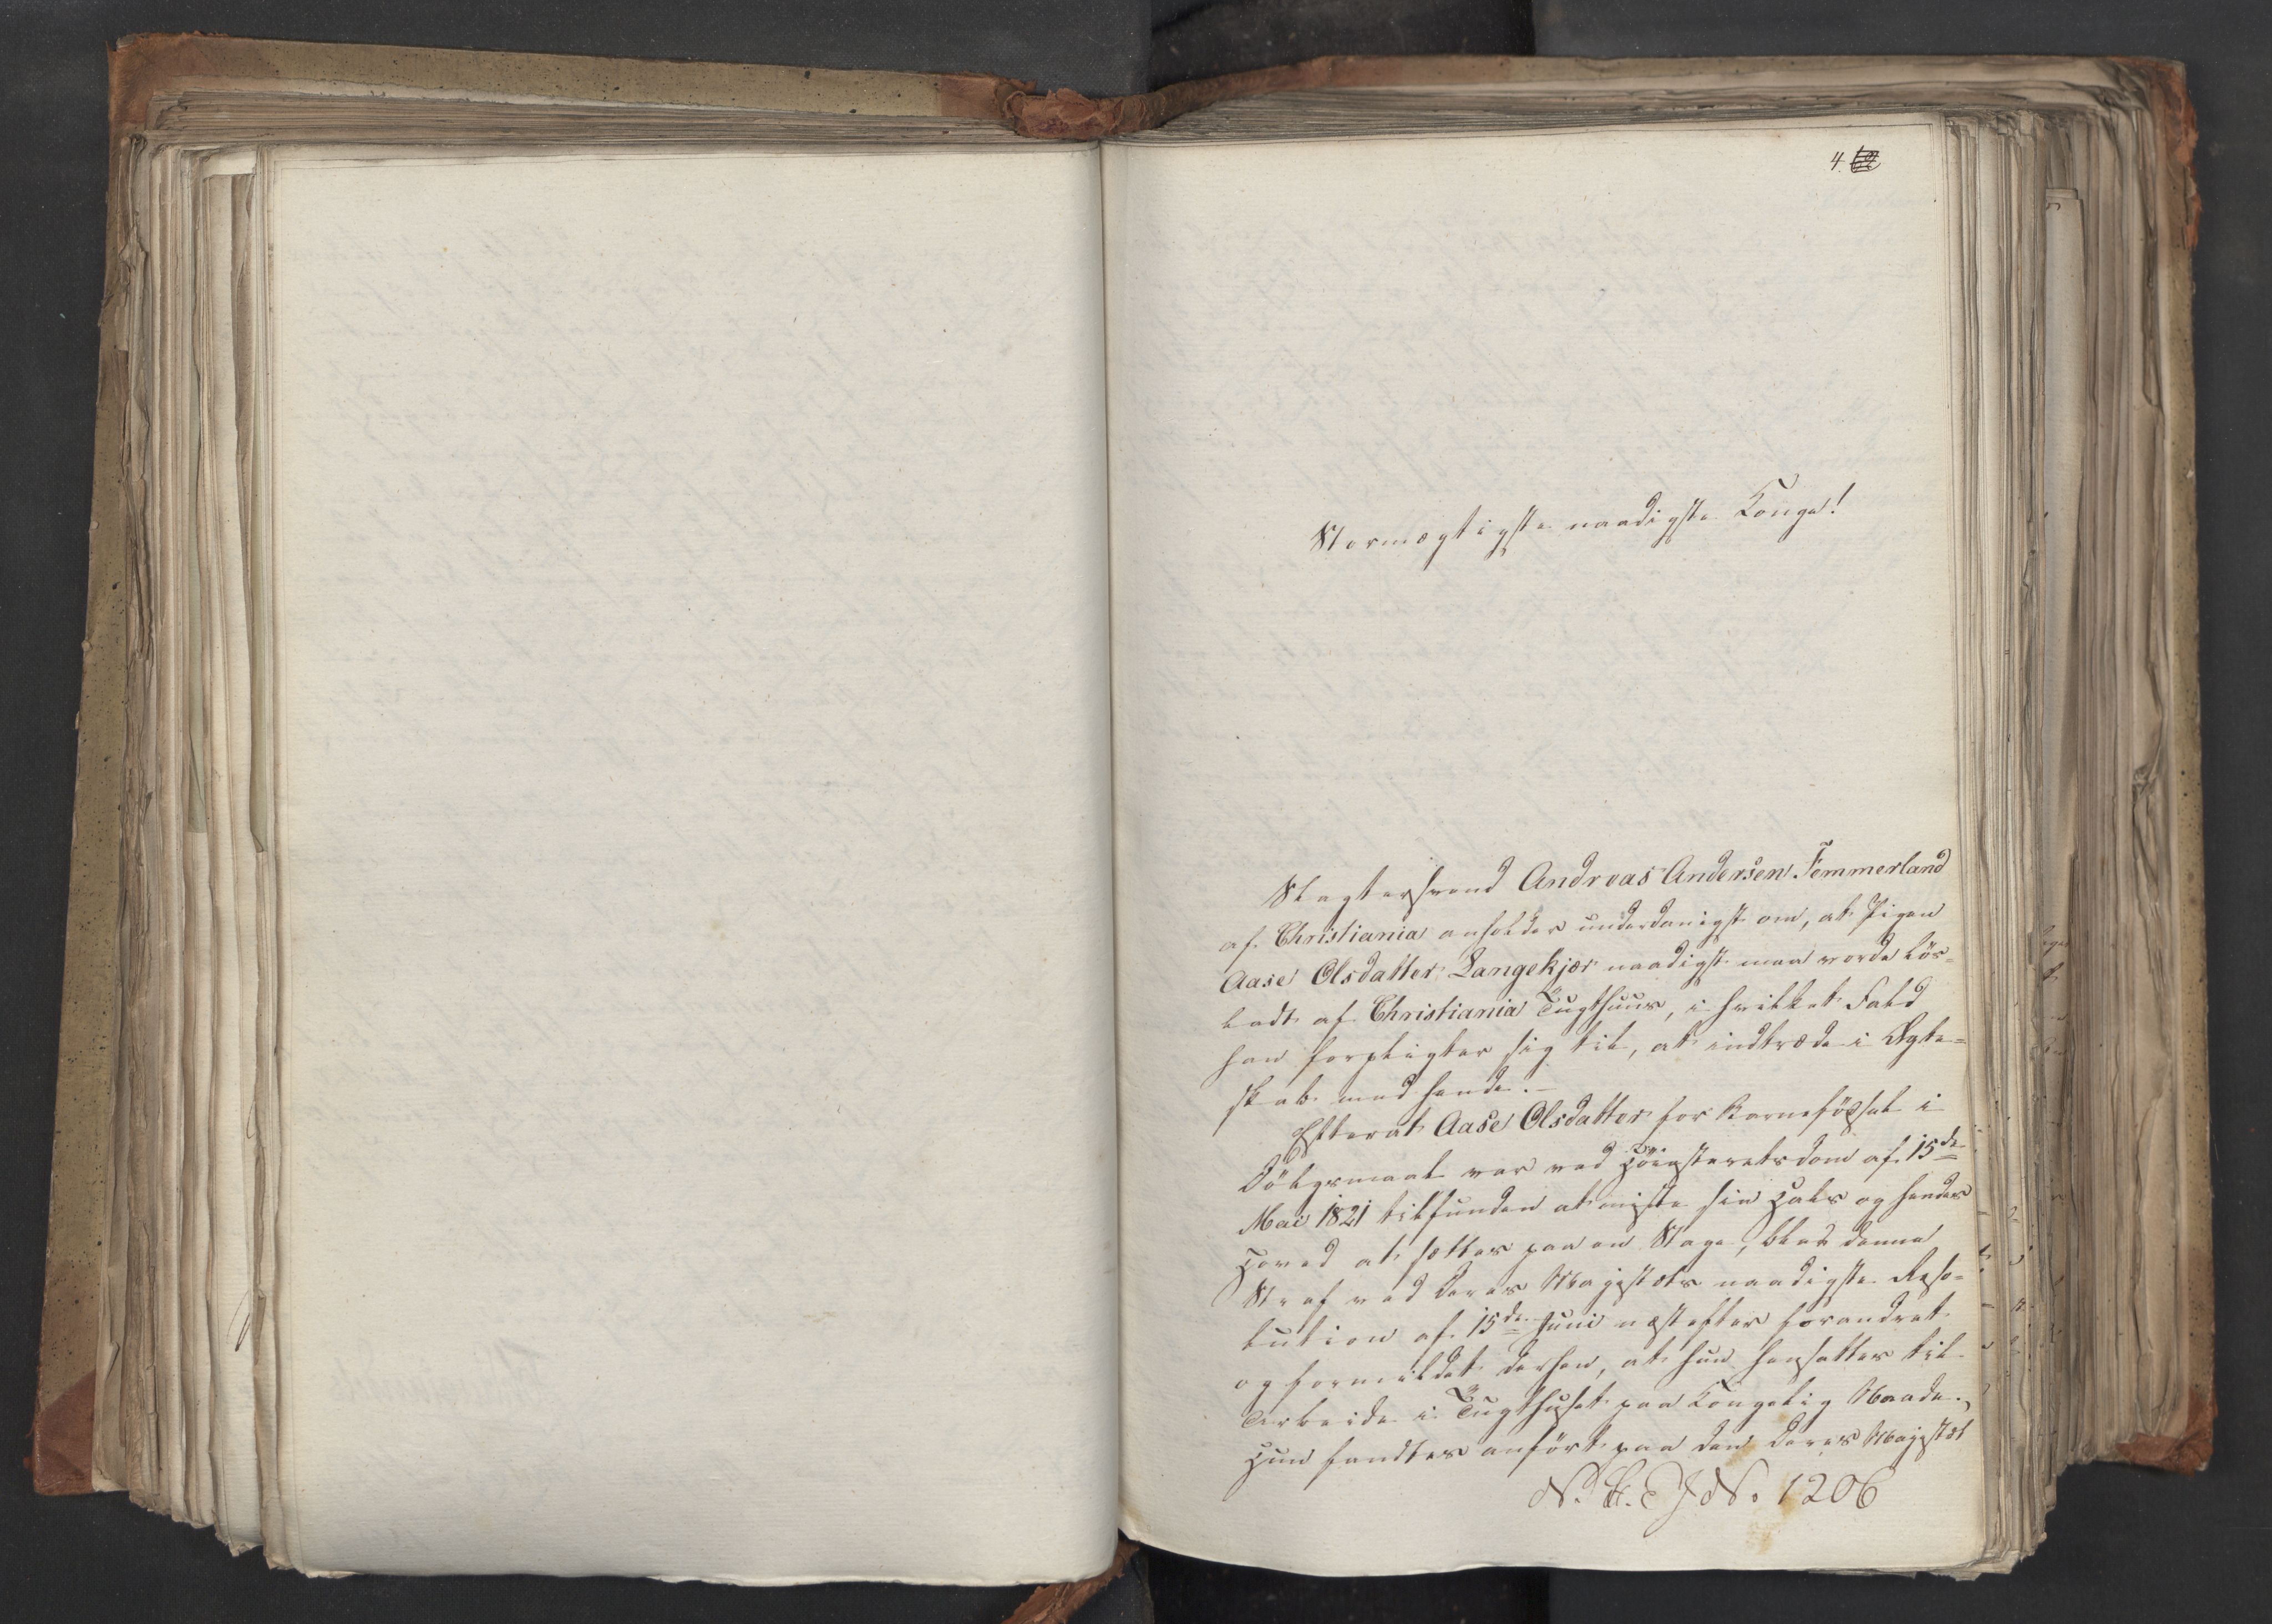 4.
Stormægtigste naadigste Konge!
Slagtersvend Andreas Andersen Femmerland
af Christiania anholder underdanigst om, at Pigen
Aase Olsdatter Langekjær naadigst maa vorde lös-
ladt af Christiania Tugthuus, i hvilket Fald
han forpligter sig til, at indtræde i Ægte-
skab med hende.-
Efterat Aase Olsdatter for Barnefödsel i
Dölgsmaal var ved Höiesteretsdom af 15de
Mai 1821 tilfunden at miste sin Hals og hendes
Hoved at sættes paa en Stage, blev denne
Straf ved Deres Majestæts naadigste Reso-
lution af 15de Juni næstefter forandret
og formildet derhen, at hun hensattes til
Arbeide i Tugthuset paa Kongelig Naade.
Hun fandtes anfört paa den Deres Majestæt
N. C. J No. 1206